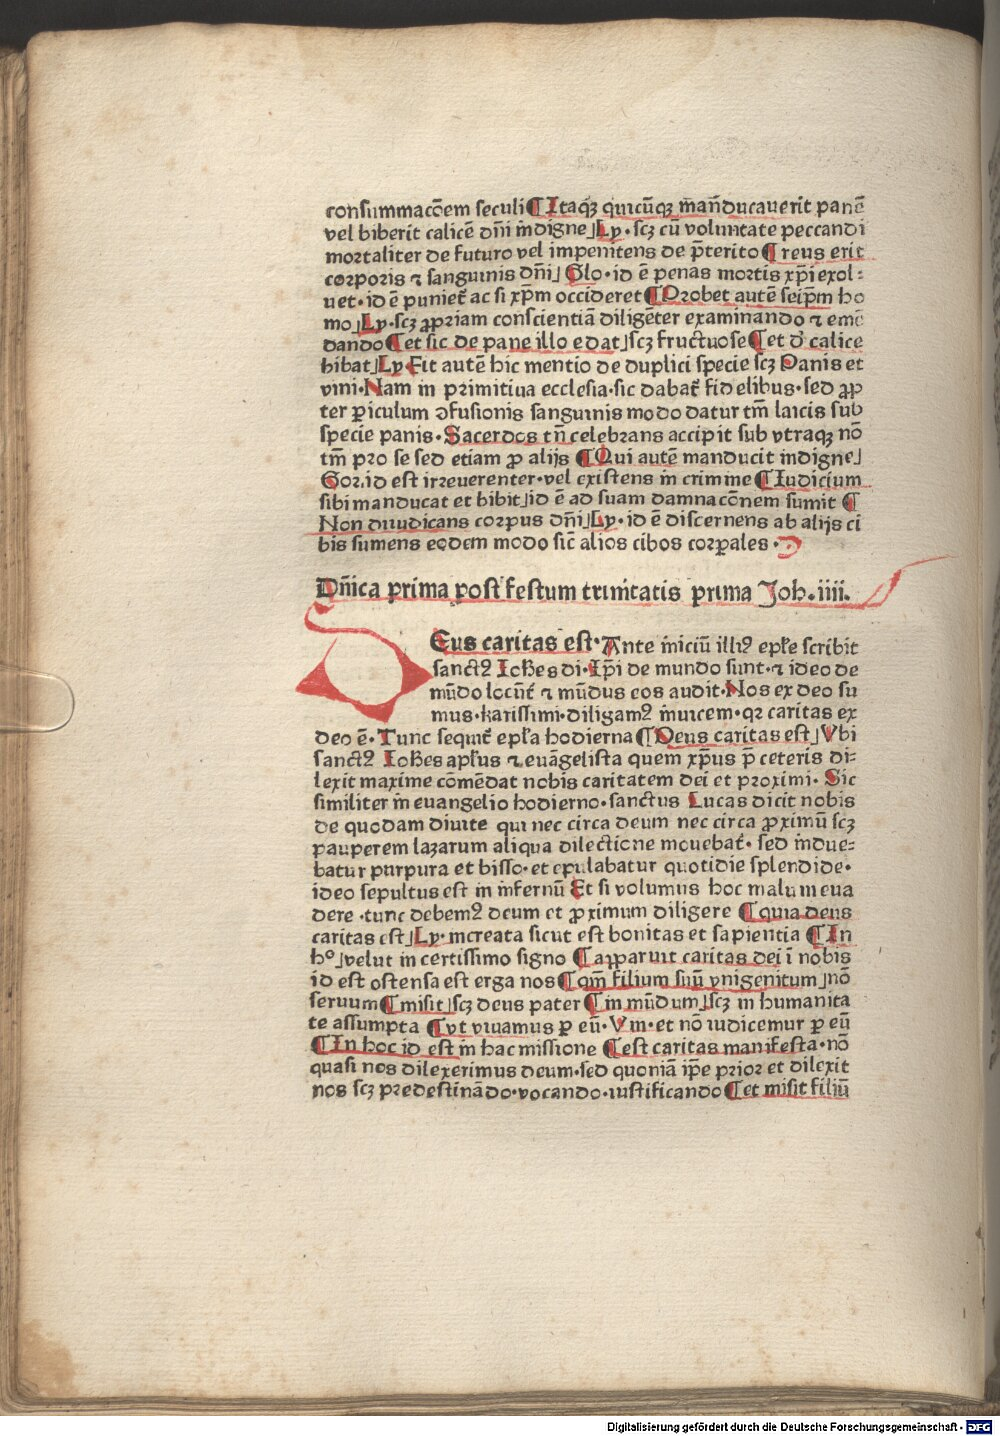 consummacōem seculi ¶ Itaqꝫ quicūqꝫ mānducauerit panē
vel biberit calicē dñi indigne⌋ Ly· scꝫ cū voluntate peccandi
mortaliter de futuro vel impenitens de p̄terito ¶ reus erit
corporis ⁊ sanguinis dñi⌋ Glo· id ē penas mortis xp̄i exol⸗
uet· id ē punieť ac si xp̄m occideret ¶ Probet autē seip̄m ho
mo⌋ Ly·scꝫ ꝓpriam conscientiā diligēter examinando ⁊ emē
dando ¶ et sic de pane illo edat⌋ scꝫ fructuose ¶ et ď calice
bibat⌋ Ly Fit autē hic mentio de duplici specie scꝫ Panis et
vini· Nam in primitiua ecclesia·sic dabať fidelibus·sed ꝓp
ter ꝑiculum ꝯfusionis sanguinis modo datur tm̄ laicis sub
specie panis· Sacerdos tn̄ celebrans accipit sub vtraqꝫ nō
tm̄ pro se sed etiam ꝓ alijs ¶ Qui autē manducit indigne⌋
Gor. id est irreuerenter·vel existens in crimine ¶ Iudicium
sibi manducat et bibit⌋ id ē ad suam damnacōnem sumit ¶
Non diiudicans corpus dñi⌋ Ly· id ē discernens ab alijs ci
bis sumens eodem modo sic̄ alios cibos corꝑales ·
Dñica prima post festum trinitatis prima Joh. iiii.
Eus caritas est· Ante iniciū illiꝰ epłe scribit
sanctꝰ Iohēs di· Ip̄i de mundo sunt·⁊ ideo de
mūdo locūť ⁊ mūdus eos audit· Nos ex deo su
mus·karissimi·diligamꝰ inuicem·qꝛ caritas ex
deo ē· Tunc sequiť epła hodierna ¶ Deus caritas est⌋ Vbi
sanctꝰ Iohēs apłus ⁊ euāgelista quem xp̄us p̄ ceteris di⸗
lexit maxime cōmēdat nobis caritatem dei et proximi· Sic
similiter in euangelio hodierno·sanctus Lucas dicit nobis
de quodam diuite qui nec circa deum nec circa ꝓximū scꝫ
pauperem lazarum aliqua dilectione mouebať· sed indue⸗
batur purpura et bisso·et epulabatur quotidie splendide·
ideo sepultus est in infernū Et si volumus hoc malum eua
dere ·tunc debemꝰ deum et ꝓximum diligere ¶ quia deus
caritas est⌋ Ly· increata sicut est bonitas et sapientia ¶ In
hº⌋ velut in certissimo signo ¶ apparuit caritas dei ī nobis
id est ostensa est erga nos ¶ qm̄ filium suū vnigenitum⌋ nō
seruum ¶ misit⌋ scꝫ deus pater ¶ in mūdum⌋ scꝫ in humanita
te assumpta ¶ vt viuamus ꝑ eū· Vin·et nō iudicemur ꝑ eū
¶ In hoc id est in hac missione ¶ est caritas manifesta·nō
quasi nos dilexerimus deum·sed quoniā ip̄e prior et dilexit
nos scꝫ predestinādo·vocando·iustificando ¶ et misit filiū
Digitalisierung gefördert durch die Deutsche Forschungsgemeinschaft - DFG